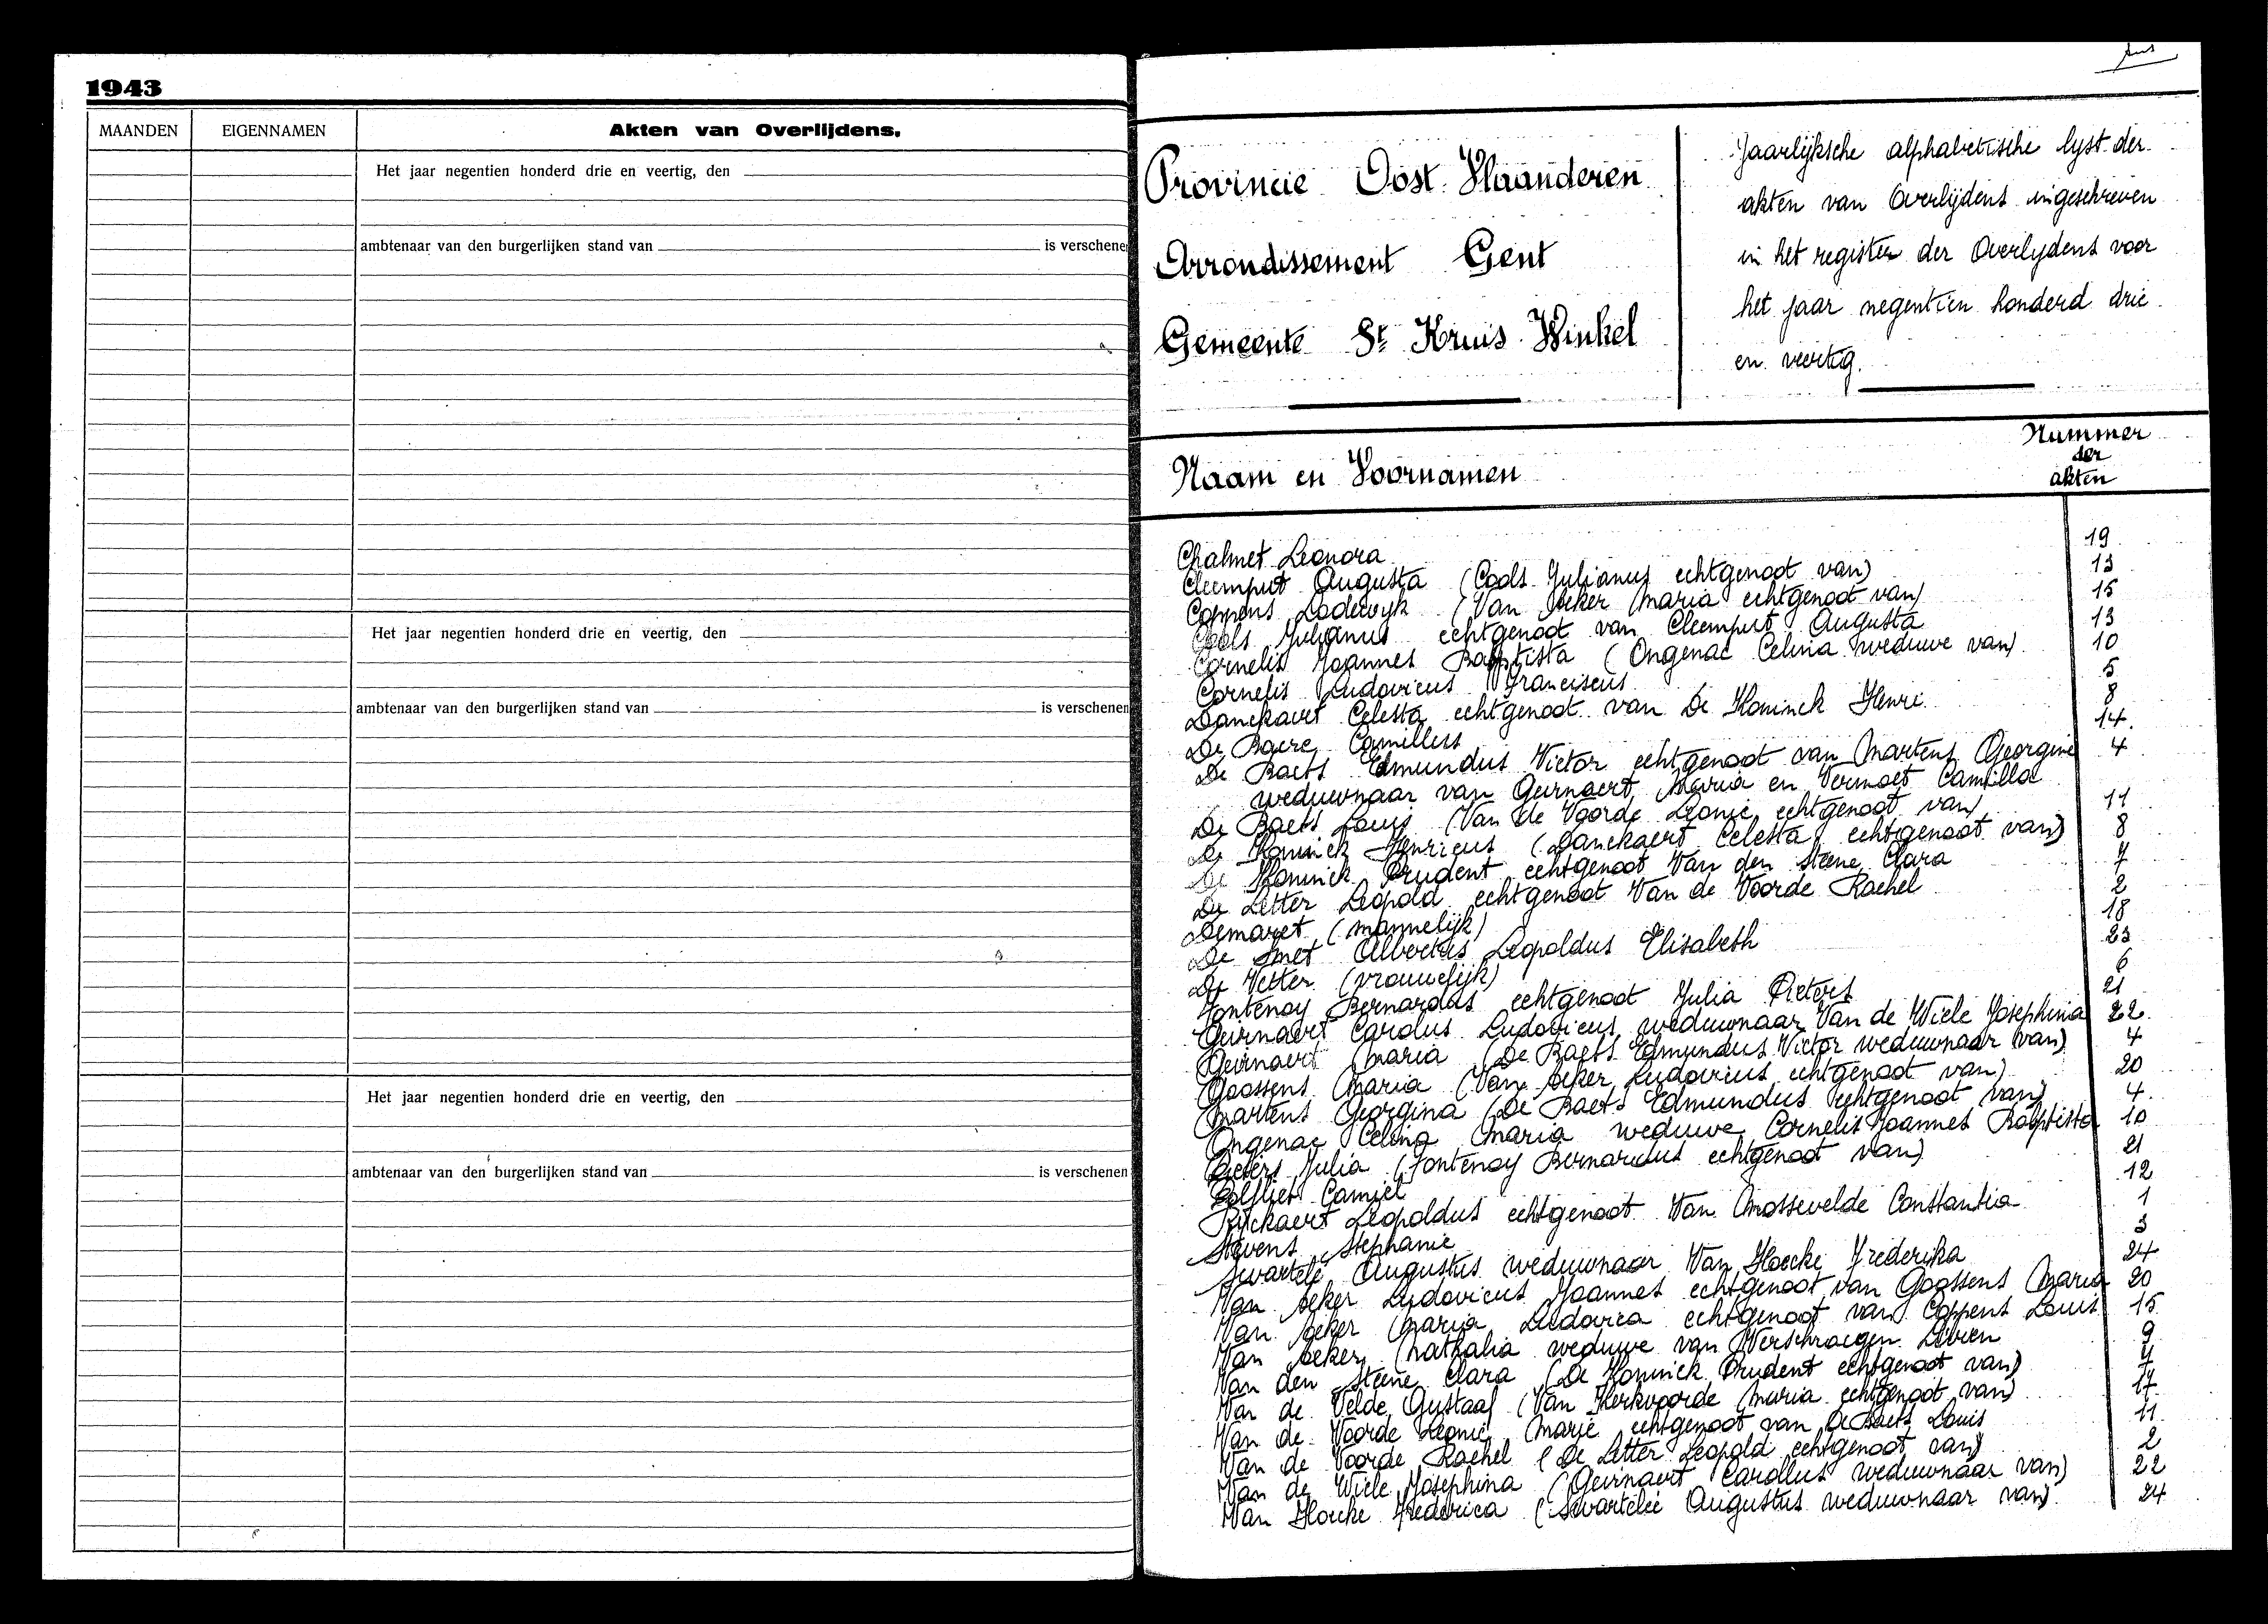 1943
MAANDEN EIGENNAMEN Akten van Overlijdens.
Het jaar negentien honderd drie en veertig, den
ambtenaar van den burgerlijken stand van is verschenen
Het jaar negentien honderd drie en veertig, den
ambtenaar van den burgerlijken stand van is verschenen
Het jaar negentien honderd drie en veertig, den
ambtenaar van den burgerlijken stand van is verschenen
Provincie Oost Vlaanderen
Arrondissement Gent
Gemeente St Kruis Winkel
Jaarlijksche alphabetische lyst der
akten van Overlijdens ingeschreven
in het register der Overlydens voor
het jaar negentien honderd drie
en veertig.
Naam en Voornamen
Nummer
der
akten
Chalmet Leonora 19
Cleemput Augusta (Cools Julianus echtgenoot van) 13
Coppens Lodewyk (Van Acker Maria echtgenoot van) 15
Cools Julianus echtgenoot van Cleemput Augusta 13
Cornelis Joannes Baptista (Ongenae Celina weduwe van) 10
Cornelis Ludovicus Franciscus 5
Danckaert Celesta echtgenoot van De Koninck Henri 8
De Baere Camillus 14
De Baets Edmundus Victor echtgenoot van Martens Georgine 4
weduwnaar van Geirnaert Maria en Vermaet Camilla
De Baets Louis (Van de Voorde Leonie echtgenoot van) 11
De Koninck Henricus (Danckaert Celesta echtgenoot van) 8
De Koninck Prudent echtgenoot Van den Steene Clara 7
De Letter Leopold echtgenoot Van de Voorde Rachel 2
Demaret (mannelijk) 18
De Smet Albertus Leopoldus Elisabeth 23
De Vetter (vrouwelijk) 6
Fontenoy Bernardus echtgenoot Julia Pieters 21
Geirnaert Carolus Ludovicus weduwnaar Van de Wiele Josephina 22
Geirnaert Maria (De Baets Edmundus Victor weduwnaar van) 4
Goossens Maria (Van Acker Ludovicus echtgenoot van) 20
Martens Georgina (De Baets Edmundus echtgenoot van) 4
Ongenae Celina Maria weduwe Cornelis Joannes Baptista 10
Pieters Julia (Fontenoy Bernardus echtgenoot van) 21
Rolfliet Camiel 12
Ryckaert Leopoldus echtgenoot Van Mossevelde Constantia 1
Stevens Stephanie 3
Swartelé Augustus weduwnaar Van Hoecke Frederika 24
Van Acker Ludovicus Joannes echtgenoot van Goossens Maria 20
Van Acker Maria Ludovica echtgenoot van Coppens Louis 15
Van Acker Nathalia weduwe van Verschraegen Livien 9
Van den Steene Clara (De Koninck Prudent echtgenoot van) 7
Van de Velde Gustaaf (Van Kerkvoorde Maria echtgenoot van) 17
Van de Voorde Leonie Marie echtgenoot van De Baets Louis 11
Van de Voorde Rachel (De Letter Leopold echtgenoot van) 2
Van de Wiele Josephina (Geirnaert Carollus weduwnaar van) 22
Van Hoecke Frederica (Swartelée Augustus weduwnaar van) 24